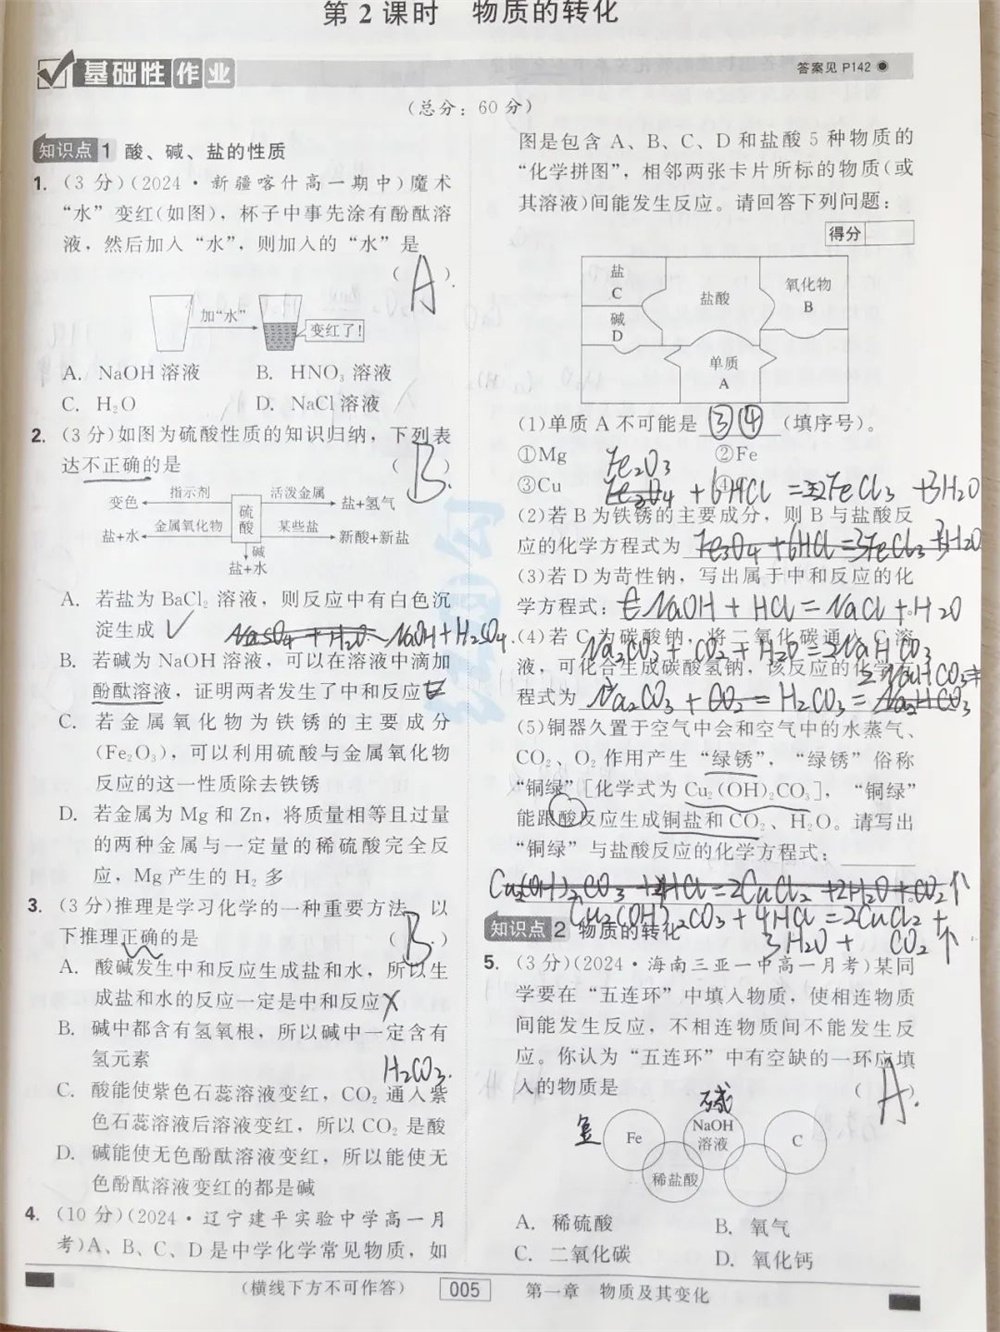 第2课时 物质的转化
基础性作业
答案见 P142
(总分：60分)
知识点 1 酸、碱、盐的性质
1. (3分)(2024·新疆喀什高一期中)魔术
“水”变红(如图)，杯子中事先涂有酚酞溶
液，然后加入“水”，则加入的“水”是
( A )
加“水”
变红了!
A. NaOH溶液 B. HNO₃溶液
C. H₂O D. NaCl溶液
2. (3分)如图为硫酸性质的知识归纳，下列表
达不正确的是 ( B )
变色 指示剂 硫酸 活泼金属 盐+氢气
盐+水 金属氧化物 某些盐 新酸+新盐
碱
盐+水
A. 若盐为BaCl₂溶液，则反应中有白色沉
淀生成 ✓
NaOH+H₂SO₄
B. 若碱为NaOH溶液，可以在溶液中滴加
酚酞溶液，证明两者发生了中和反应
C. 若金属氧化物为铁锈的主要成分
(Fe₂O₃)，可以利用硫酸与金属氧化物
反应的这一性质除去铁锈
D. 若金属为Mg和Zn，将质量相等且过量
的两种金属与一定量的稀硫酸完全反
应，Mg产生的H₂多
3. (3分)推理是学习化学的一种重要方法，以
下推理正确的是 ( B )
A. 酸碱发生中和反应生成盐和水，所以生
成盐和水的反应一定是中和反应 X
B. 碱中都含有氢氧根，所以碱中一定含有
氢元素
H₂CO₃.
C. 酸能使紫色石蕊溶液变红，CO₂通入紫
色石蕊溶液后溶液变红，所以CO₂是酸
D. 碱能使无色酚酞溶液变红，所以能使无
色酚酞溶液变红的都是碱
4. (10分)(2024·辽宁建平实验中学高一月
考)A、B、C、D是中学化学常见物质，如
图是包含A、B、C、D和盐酸5种物质的
“化学拼图”，相邻两张卡片所标的物质(或
其溶液)间能发生反应。请回答下列问题：
得分
盐
C
碱
D
盐酸
氧化物
B
单质
A
(1)单质A不可能是 ③④ (填序号)。
①Mg ②Fe
③Cu
Fe₂O₃
+6HCl=2FeCl₃+3H₂O
(2)若B为铁锈的主要成分，则B与盐酸反
应的化学方程式为
Fe₃O₄+6HCl=3FeCl₃+3H₂O
(3)若D为苛性钠，写出属于中和反应的化
学方程式： NaOH+HCl=NaCl+H₂O
(4)若C为碳酸钠，将二氧化碳通入C溶
Na₂CO₃+CO₂+H₂O=2NaHCO₃
液，可化合生成碳酸氢钠，该反应的化学方
2NaHCO₃
程式为 Na₂CO₃+CO₂=H₂CO₃=Na₂HCO₃
(5)铜器久置于空气中会和空气中的水蒸气、
CO₂、O₂作用产生“绿锈”，“绿锈”俗称
“铜绿”[化学式为Cu₂(OH)₂CO₃]，“铜绿”
能跟酸反应生成铜盐和CO₂、H₂O。请写出
“铜绿”与盐酸反应的化学方程式：
Cu₂(OH)₂CO₃+4HCl=2CuCl₂+2H₂O+CO₂↑
Cu₂(OH)₂CO₃+4HCl=2CuCl₂+
3H₂O+CO₂↑
知识点 2 物质的转化
5. (3分)(2024·海南三亚一中高一月考)某同
学要在“五连环”中填入物质，使相连物质
间能发生反应，不相连物质间不能发生反
应。你认为“五连环”中有空缺的一环应填
入的物质是 ( A )
碱
金 Fe NaOH溶液 C
稀盐酸
A. 稀硫酸 B. 氧气
C. 二氧化碳 D. 氧化钙
(横线下方不可作答) 005 第一章 物质及其变化